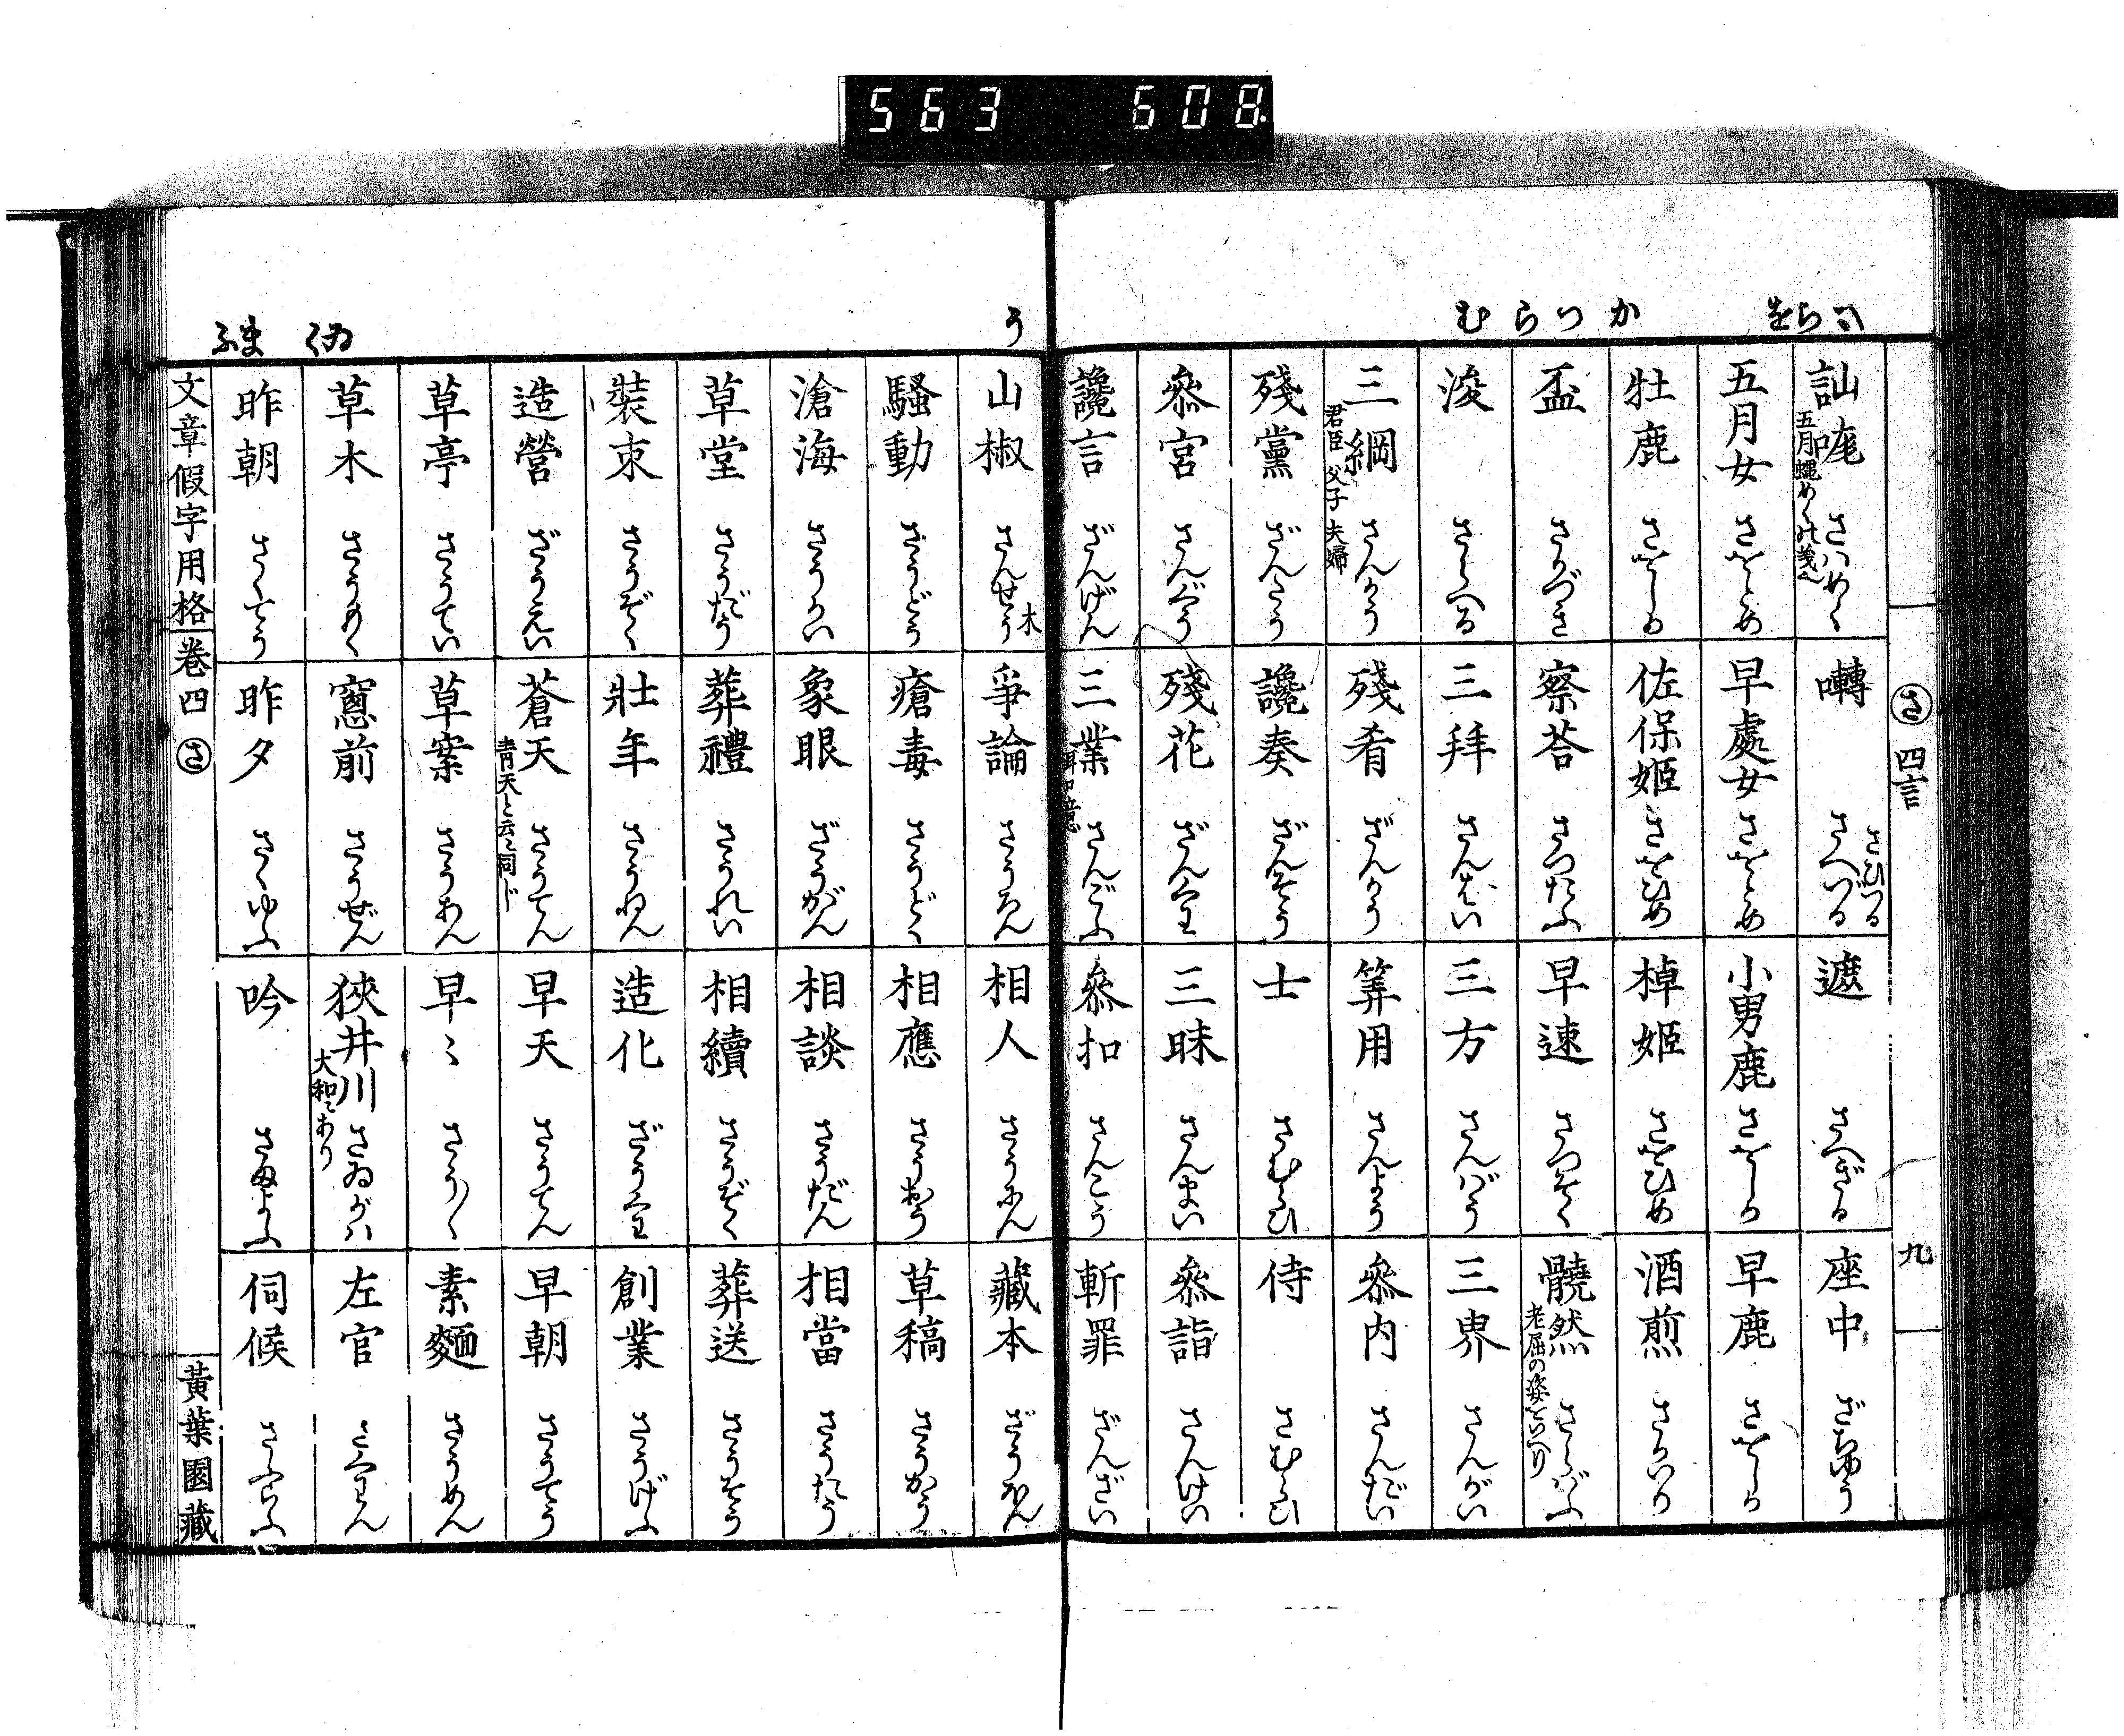 563 608
さ 四言 九
はちを
かつらむ
訕咙 さはめく 五月蠅めくの義也
囀 さへづる さひづる
遮 さへぎる
座中 ざちゆう
五月女 さをとめ
早處女 さをとめ
小男鹿 さをしか
早鹿 さをしか
牡鹿 さをしか
佐保姫 さをひめ
棹姫 さをひめ
酒煎 さかいり
盃 さかづき
察荅 さつたふ
早速 さつそく
髐然 さらばふ 老屈の姿をいへり
浚 さらへる
三拜 さんはい
三方 さんばう
三界 さんがい
三綱 さんかう 君臣 父子 夫婦
殘肴 ざんかう
筭用 さんよう
叅内 さんだい
殘黨 ざんたう
讒奏 ざんそう
士 さむらひ
侍 さむらひ
叅宮 さんぐう
殘花 ざんくわ
三昧 さんまい
叅詣 さんけい
讒言 ざんげん
三業 さんごふ
叅扣 さんこう
斬罪 ざんざい
う
山椒 さんせう 木
爭論 さうろん
相人 さうにん
藏本 ざうほん
騷動 さうどう
瘡毒 さうどく
相應 さうおう
草稿 さうかう
滄海 さうかい
象眼 ざうがん
相談 さうだん
相當 さうたう
草堂 さうだう
葬禮 さうれい
相續 さうぞく
葬送 さうそう
裝束 さうぞく
壯年 さうねん
造化 ざうくわ
創業 さうげふ
造營 ざうえい
蒼天 さうてん 青天と云に同じ
早天 さうてん
早朝 さうてう
草亭 さうてい
草案 さうあん
早〻 さう〳〵
素麵 さうめん
ゐく
草木 さうもく
窓前 さうぜん
狹井川 さゐがは 大和にあり
左官 さくわん
まふ
昨朝 さくてう
昨夕 さくゆふ
吟 さまよふ
伺候 さふらふ
文章假字用格 卷四 さ 黃葉園藏